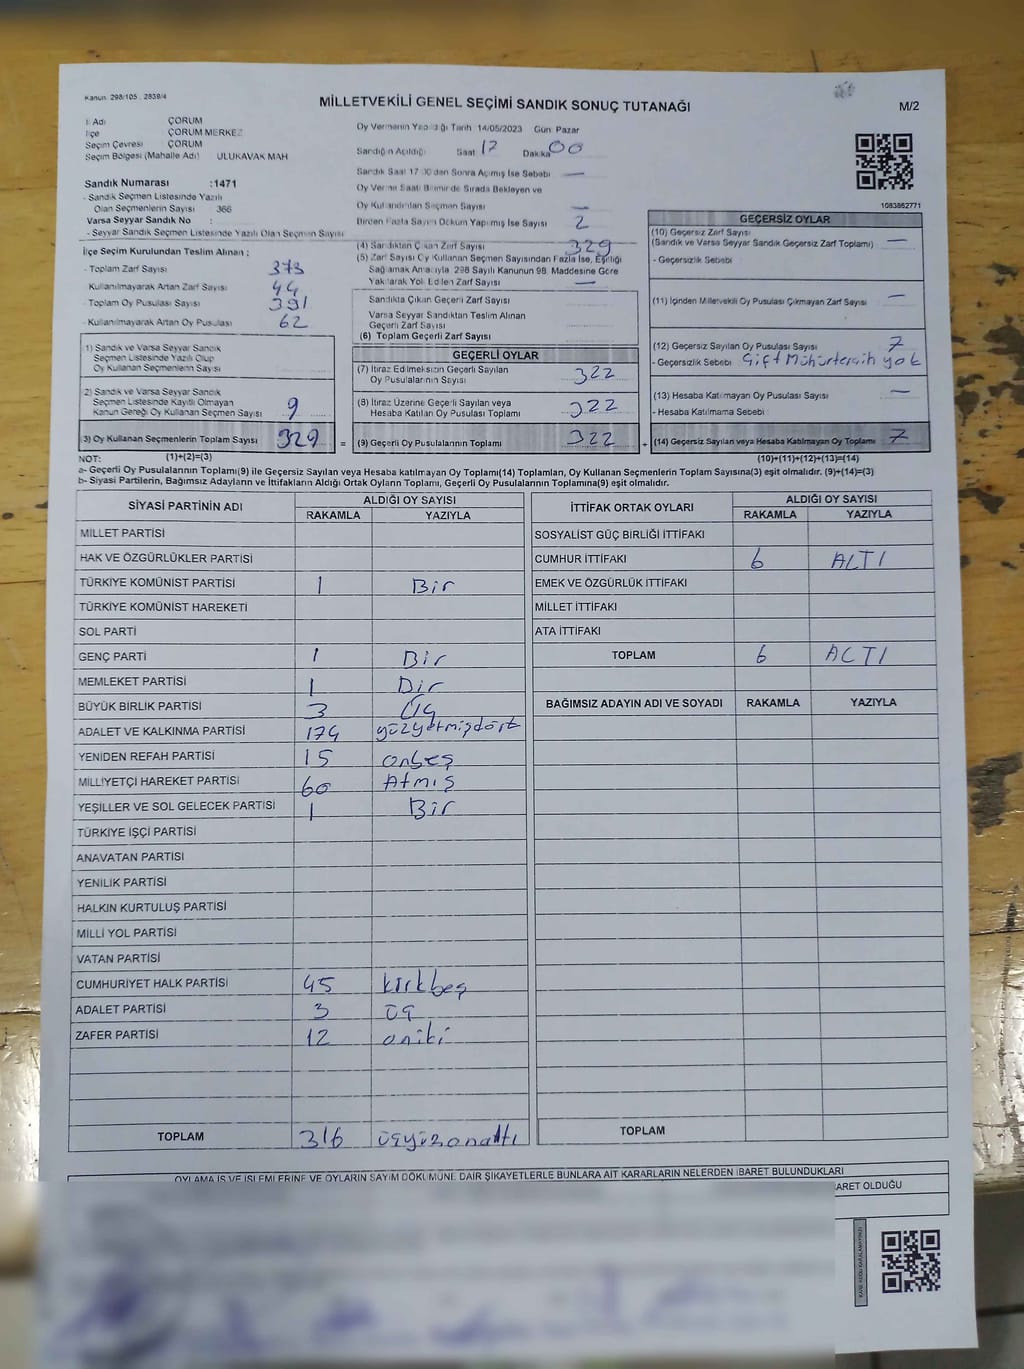 Kanun: 298/105 , 2839/4
MİLLETVEKİLİ GENEL SEÇİMİ SANDIK SONUÇ TUTANAĞI
M/2
İl Adı ÇORUM
İlçe ÇORUM MERKEZ
Seçim Çevresi ÇORUM
Seçim Bölgesi (Mahalle Adı) ULUKAVAK MAH
Oy Vermenin Yapıldığı Tarih 14/05/2023 Gün Pazar
Sandığın Açıldığı Saat 17 Dakika 00
Sandık Saat 17:00'den Sonra Açılmış İse Sebebi —
Oy Verme Saati Bitiminde Sırada Bekleyen ve
Oy Kullandırılan Seçmen Sayısı —
Birden Fazla Sayım Döküm Yapılmış İse Sayısı 2
1083852771
Sandık Numarası :1471
- Sandık Seçmen Listesinde Yazılı
Olan Seçmenlerin Sayısı 366
Varsa Seyyar Sandık No :
- Seyyar Sandık Seçmen Listesinde Yazılı Olan Seçmen Sayısı
İlçe Seçim Kurulundan Teslim Alınan :
- Toplam Zarf Sayısı 373
- Kullanılmayarak Artan Zarf Sayısı 44
- Toplam Oy Pusulası Sayısı 391
- Kullanılmayarak Artan Oy Pusulası 62
1) Sandık ve Varsa Seyyar Sandık
Seçmen Listesinde Yazılı Olup
Oy Kullanan Seçmenlerin Sayısı
2) Sandık ve Varsa Seyyar Sandık
Seçmen Listesinde Kayıtlı Olmayan
Kanun Gereği Oy Kullanan Seçmen Sayısı 9
(3) Oy Kullanan Seçmenlerin Toplam Sayısı 329 =
(4) Sandıktan Çıkan Zarf Sayısı 329
(5) Zarf Sayısı Oy Kullanan Seçmen Sayısından Fazla İse, Eşitliği
Sağlamak Amacıyla 298 Sayılı Kanunun 98. Maddesine Göre
Yakılarak Yok Edilen Zarf Sayısı —
Sandıkta Çıkan Geçerli Zarf Sayısı
Varsa Seyyar Sandıktan Teslim Alınan
Geçerli Zarf Sayısı
(6) Toplam Geçerli Zarf Sayısı
GEÇERLİ OYLAR
(7) İtiraz Edilmeksizin Geçerli Sayılan
Oy Pusulalarının Sayısı 322
(8) İtiraz Üzerine Geçerli Sayılan veya
Hesaba Katılan Oy Pusulası Toplamı 322
(9) Geçerli Oy Pusulalarının Toplamı 322 +
GEÇERSİZ OYLAR
(10) Geçersiz Zarf Sayısı
(Sandık ve Varsa Seyyar Sandık Geçersiz Zarf Toplamı) —
- Geçersizlik Sebebi
(11) İçinden Milletvekili Oy Pusulası Çıkmayan Zarf Sayısı —
(12) Geçersiz Sayılan Oy Pusulası Sayısı 7
- Geçersizlik Sebebi Çift Mühürtercih yok
(13) Hesaba Katılmayan Oy Pusulası Sayısı —
- Hesaba Katılmama Sebebi
(14) Geçersiz Sayılan veya Hesaba Katılmayan Oy Toplamı 7
NOT: (1)+(2)=(3) (10)+(11)+(12)+(13)=(14)
a- Geçerli Oy Pusulalarının Toplamı(9) ile Geçersiz Sayılan veya Hesaba katılmayan Oy Toplamı(14) Toplamları, Oy Kullanan Seçmenlerin Toplam Sayısına(3) eşit olmalıdır. (9)+(14)=(3)
b- Siyasi Partilerin, Bağımsız Adayların ve İttifakların Aldığı Ortak Oyların Toplamı, Geçerli Oy Pusulalarının Toplamına(9) eşit olmalıdır.
SİYASİ PARTİNİN ADI ALDIĞI OY SAYISI
RAKAMLA YAZIYLA
MİLLET PARTİSİ
HAK VE ÖZGÜRLÜKLER PARTİSİ
TÜRKİYE KOMÜNİST PARTİSİ 1 Bir
TÜRKİYE KOMÜNİST HAREKETİ
SOL PARTİ
GENÇ PARTİ 1 Bir
MEMLEKET PARTİSİ 1 Bir
BÜYÜK BİRLİK PARTİSİ 3 Üç
ADALET VE KALKINMA PARTİSİ 174 yüzyetmişdört
YENİDEN REFAH PARTİSİ 15 onbeş
MİLLİYETÇİ HAREKET PARTİSİ 60 Atmış
YEŞİLLER VE SOL GELECEK PARTİSİ 1 Bir
TÜRKİYE İŞÇİ PARTİSİ
ANAVATAN PARTİSİ
YENİLİK PARTİSİ
HALKIN KURTULUŞ PARTİSİ
MİLLİ YOL PARTİSİ
VATAN PARTİSİ
CUMHURİYET HALK PARTİSİ 45 kırkbeş
ADALET PARTİSİ 3 üç
ZAFER PARTİSİ 12 oniki
TOPLAM 316 üçyüzonaltı
İTTİFAK ORTAK OYLARI ALDIĞI OY SAYISI
RAKAMLA YAZIYLA
SOSYALİST GÜÇ BİRLİĞİ İTTİFAKI
CUMHUR İTTİFAKI 6 ALTI
EMEK VE ÖZGÜRLÜK İTTİFAKI
MİLLET İTTİFAKI
ATA İTTİFAKI
TOPLAM 6 ALTI
BAĞIMSIZ ADAYIN ADI VE SOYADI RAKAMLA YAZIYLA
TOPLAM
OYLAMA İŞ VE İŞLEMLERİNE VE OYLARIN SAYIM DÖKÜMÜNE DAİR ŞİKAYETLERLE BUNLARA AİT KARARLARIN NELERDEN İBARET BULUNDUKLARI
ARET OLDUĞU